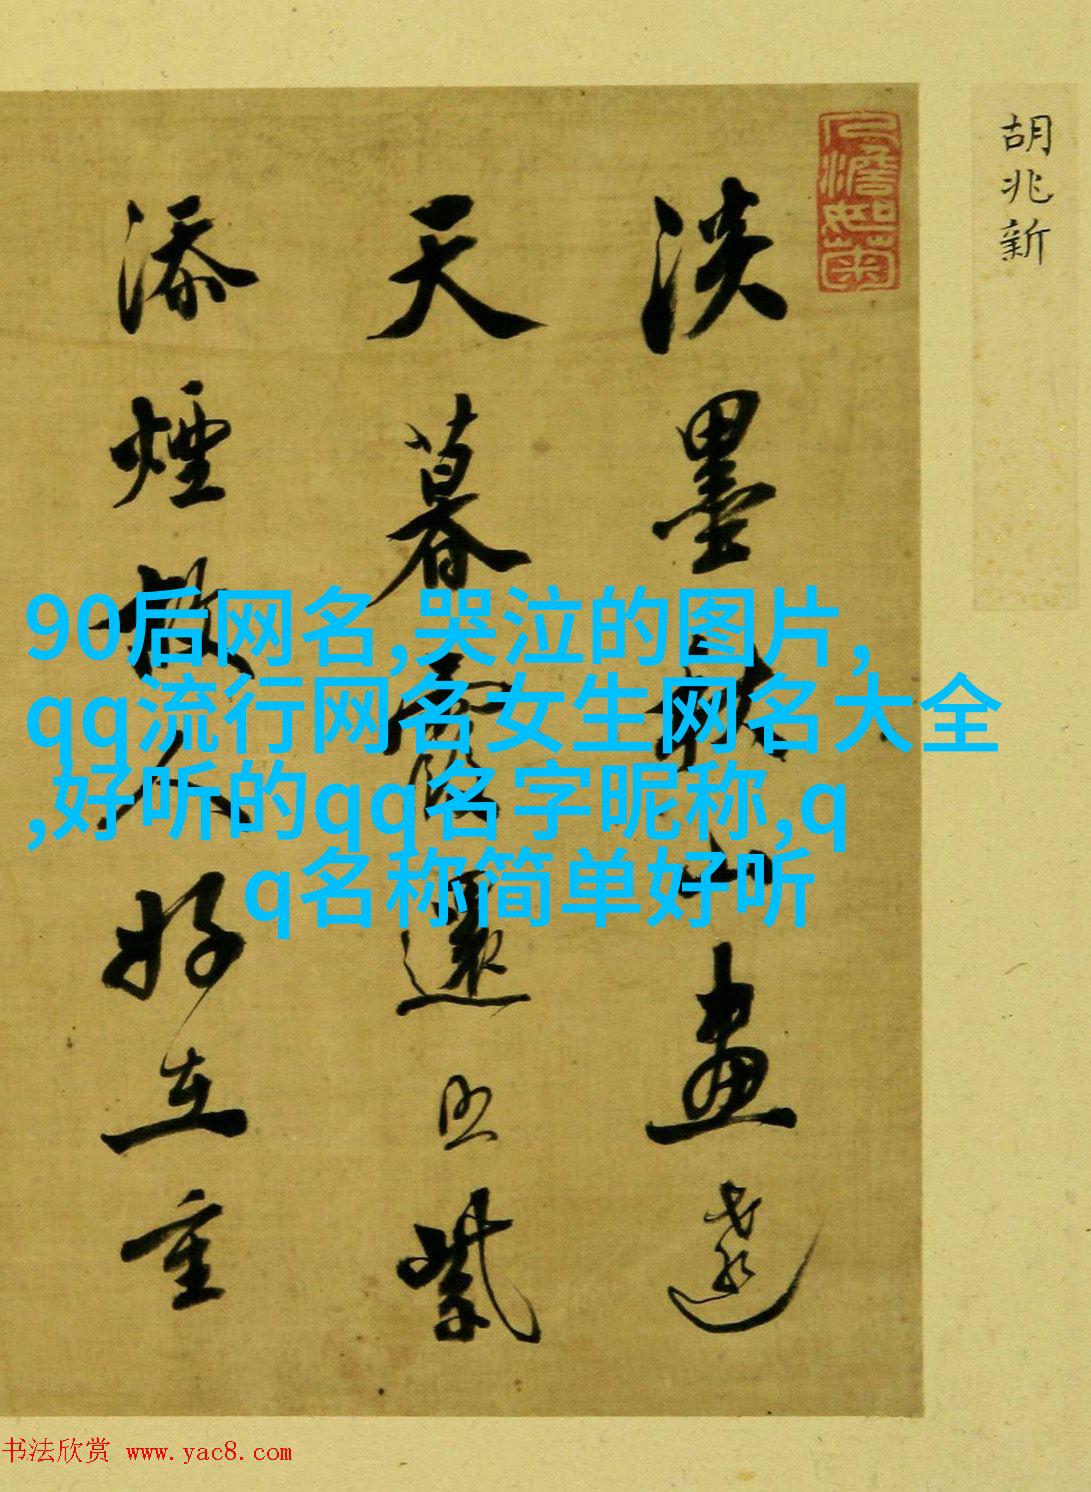 胡兆新
人澹如菊
淡墨秋山畫遠
天暮霞還照紫
添煙故人好在重
90后网名,哭泣的图片,
qq流行网名女生网名大全
,好听的qq名字昵称,q
q名称简单好听
书法欣赏 www.yac8.com